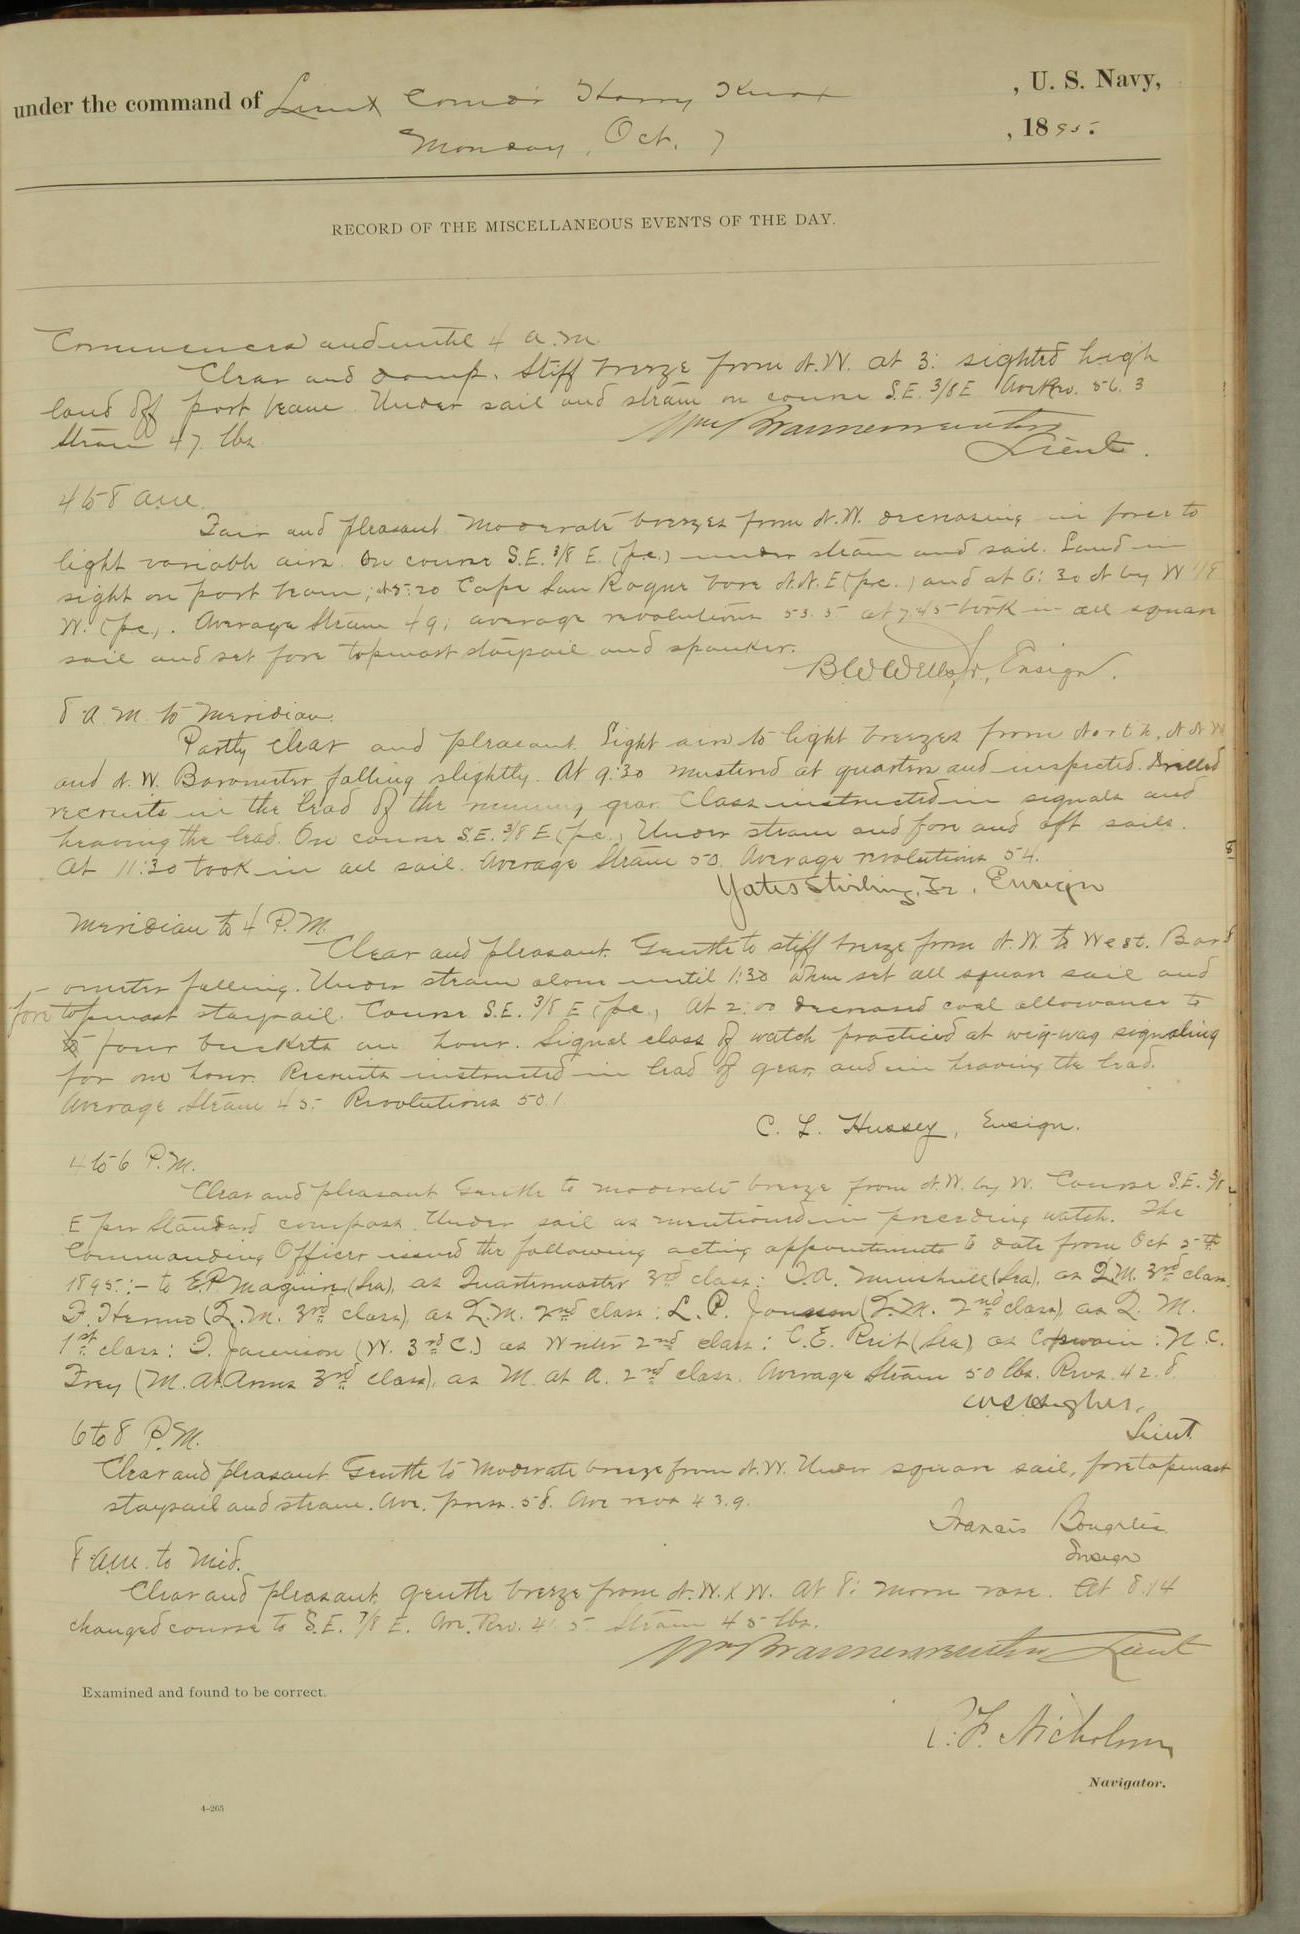 under the command of Lieut Comdr Harry Knox , U. S. Navy,
Monday, Oct. 7 , 1895.
RECORD OF THE MISCELLANEOUS EVENTS OF THE DAY.
Commences and until 4 a.m
Clear and damp. Stiff breeze from N.W. at 3: sighted high
land off port beam. Under sail and steam on course S.E. 3/8 E Av Rev. 56.3
Steam 47 lbs.
Wm Braunersreuther
Lieut.
4 to 8 a.m.
Fair and pleasant. Moderate breezes from N.W. decreasing in force to
light variable airs. On course S.E. 3/8 E. (p.c.) under steam and sail. Land in
sight on port beam; at 5:20 Cape San Roque bore N.N.E (p.c.) and at 6:30 N by W
W. (p.c.). Average Steam 49; average revolutions 53.5 at 7.45 took in all square
sail and set fore topmast staysail and spanker.
B.W. Wells Jr, Ensign.
8 A.M. to Meridian.
Partly clear and pleasant. Light airs to light breezes from North, N N W
and N.W. Barometer falling slightly. At 9:30 mustered at quarters and inspected. Drilled
recruits in the lead of the running gear. Class instructed in signals and
heaving the lead. On course S.E. 3/8 E (p.c.) Under steam and fore and aft sails.
At 11:30 took in all sail. Average Steam 50. Average revolutions 54.
Yates Stirling, Jr., Ensign
Meridian to 4 P.M.
Clear and pleasant. Gentle to stiff breeze from N.W. to West. Bar
-ometer falling. Under steam alone until 1:30 when set all square sail and
fore topmast staysail. Course S.E. 3/8 E (p.c.) At 2:00 decreased coal allowance to
to four buckets an hour. Signal class of watch practiced at wig-wag signaling
for one hour. Recruits instructed in lead of gear, and in heaving the lead.
Average Steam 45. Revolutions 50.1
C. L. Hussey, Ensign.
4 to 6 P.M.
Clear and pleasant Gentle to moderate breeze from N.W. by W. Course S.E. 3/8
E per Standard compass. Under sail as mentioned in preceding watch. The
Commanding Officer issued the following acting appointments to date from Oct 5th
1895:- to E.P. Maguire (Sea), as Quartermaster 3rd class: (Sea), as Q.M. 3rd class
F. (Q.M. 3rd class), as Q.M. 2nd class: L. P. (Q.M. 2nd class), as Q. M.
1st class: J. Jamison (W. 3rd C.) as Writer 2nd class: C.E. (Sea) as Coxswain: N.C.
Frey (M. At Arms 3rd class), as M. at A. 2nd class. Average Steam 50 lbs. Revs. 42.8
Lieut
6 to 8 P.M.
Clear and pleasant. Gentle to moderate breeze from N.W. Under square sail, fore topmast
staysail and steam. Ave. press. 58. Ave revs 43.9.
Francis
Ensign
8 a.m. to Mid.
Clear and pleasant, gentle breeze from N.W. x W. At 8: moon rose. At 8.14
changed course to S.E. 7/8 E. Av. Rev. 41.5 Steam 45 lbs.
Wm Braunersreuther Lieut
Examined and found to be correct.
F. Nicholson
Navigator.
4-265